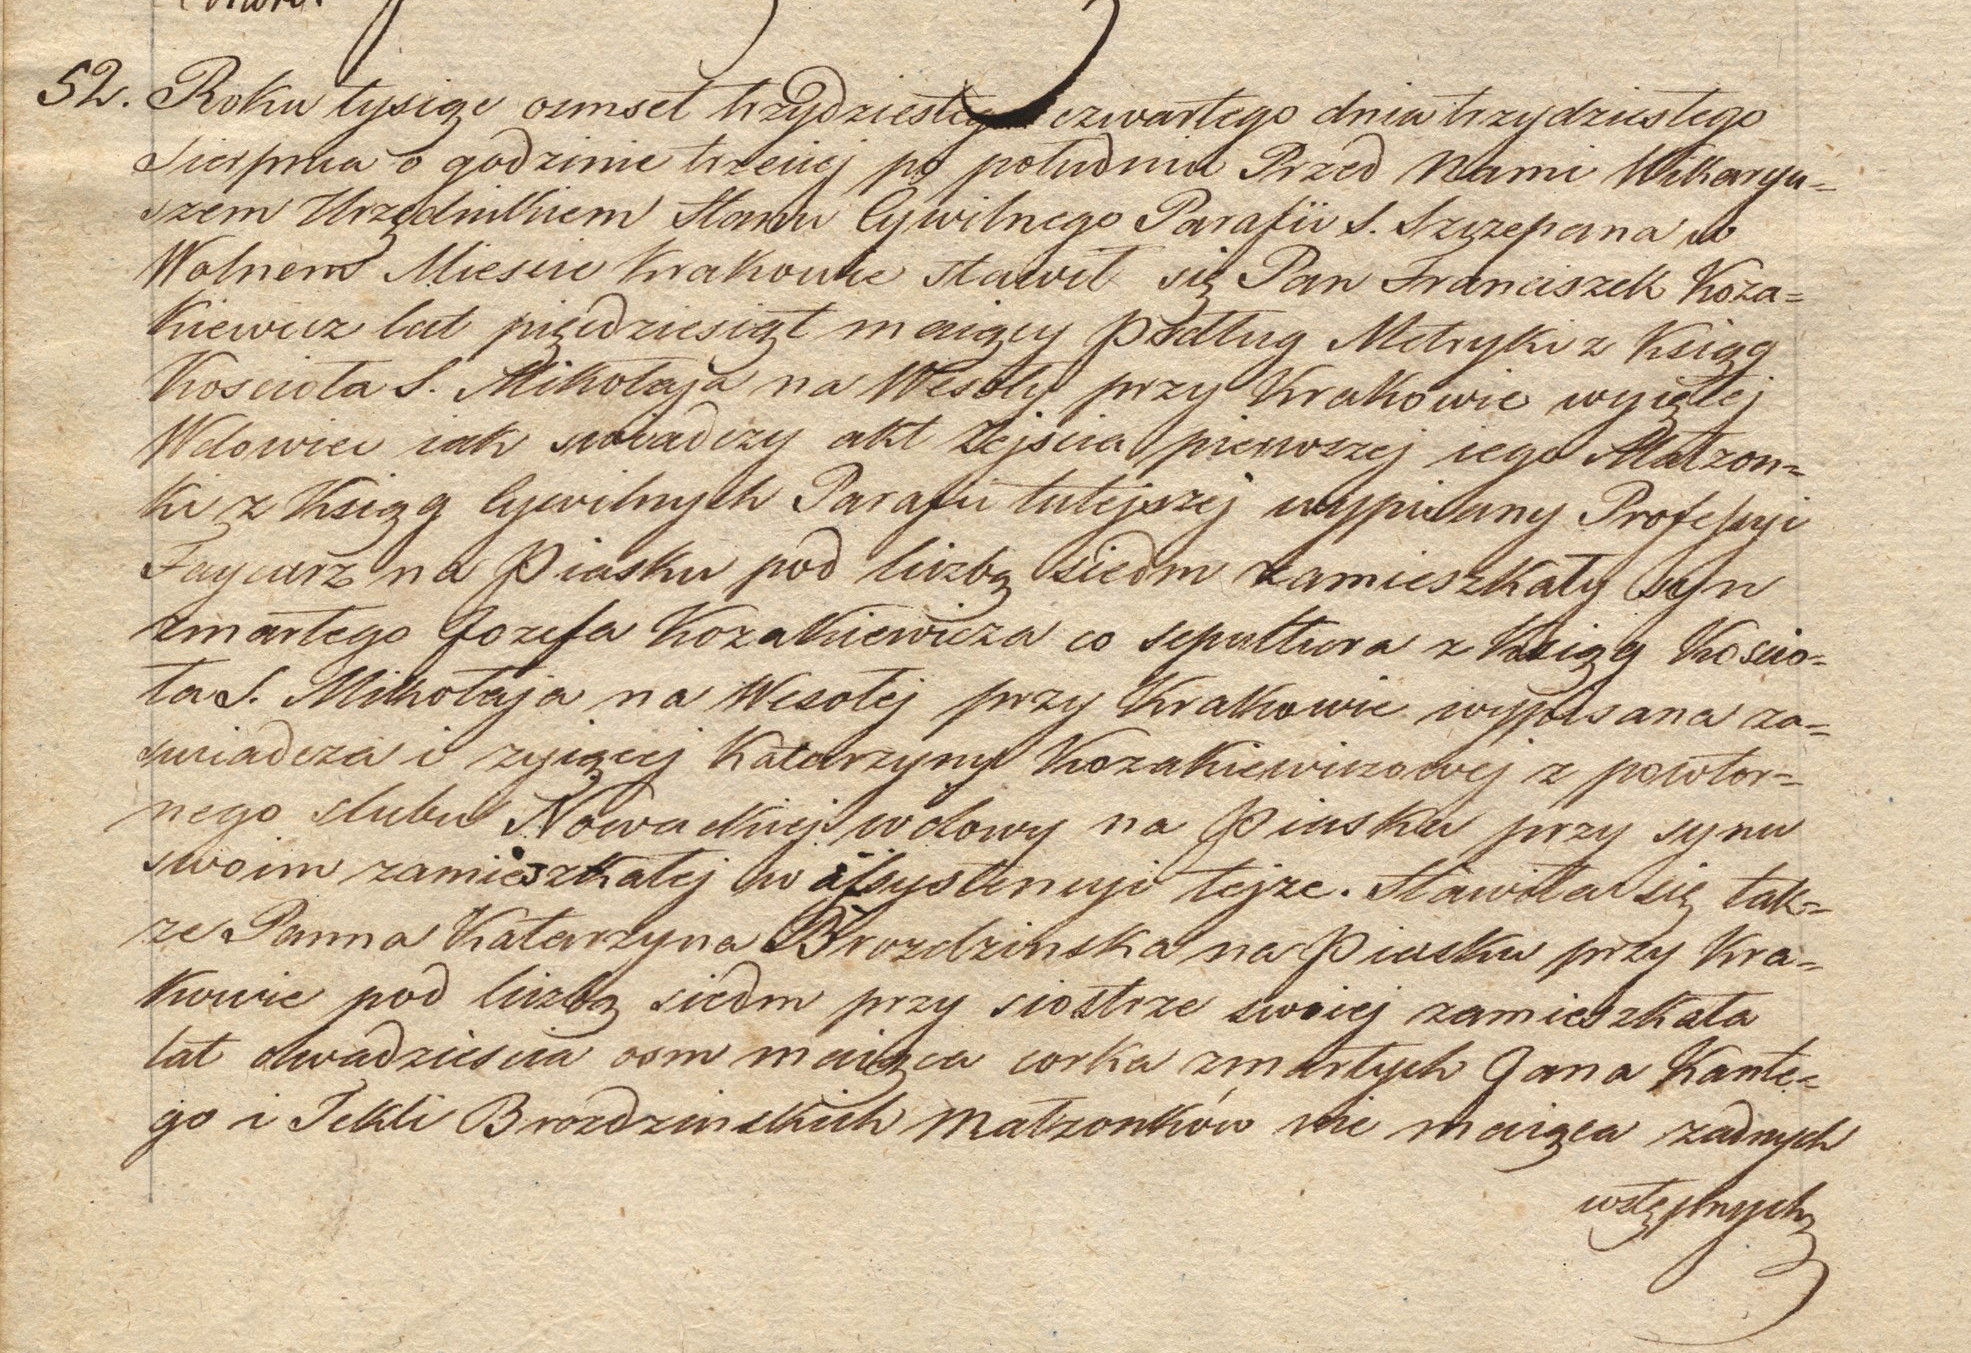 52. Roku tysiąc osmset trzydziestego czwartego dnia trzydziestego
Sierpnia o godzinie trzeciej po południu Przed Nami Wikaryu=
szem Urzędnikiem Stanu Cywilnego Parafii S. Szczepana w
Wolnem Miescie Krakowie stawił się Pan Franciszek Koza=
kiewicz lat pięćdziesiąt maiący podług Metryki z Ksiąg
Kościoła S. Mikołaja na Wesoły przy Krakowie wyiętej
Wdowiec iak swiadczy akt Zejscia pierwszej iego Małzon=
ki z Ksiąg Cywilnych Parafii tutejszej wypisany Professyi
Faycarz na Piasku pod liczbą siedm zamieszkały syn
zmarłego Jozefa Kozakiewicza co sepultura z Ksiąg Koscio=
ła S. Mikołaja na Wesołej przy Krakowie wypisana za=
swiadcza i zyiącej Katarzyny Kozakiewiczowej z powtor=
nego slubu Nowackiej wdowy na Piasku przy synu
swoim zamieszkałej w assystencyi tejze. Stawiła się tak=
ze Panna Katarzyna Brozdzinska na Piasku przy Kra=
kowie pod liczbą siedm przy siostrze swoiej zamieszkała
lat dwadziescia osm maiąca corka zmarłych Jana Kante=
go i Tekli Brozdzinskich Małzonków nie maiąca zadnych
wstępnych